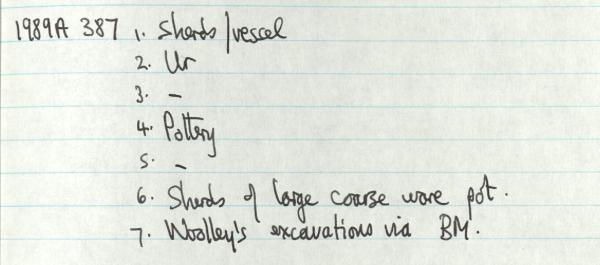 1989A 387 1. Sherds/vessel
2. Ur
3. –
4. Pottery
5. –
6. Sherds of large coarse ware pot.
7. Woolley's excavations via BM.